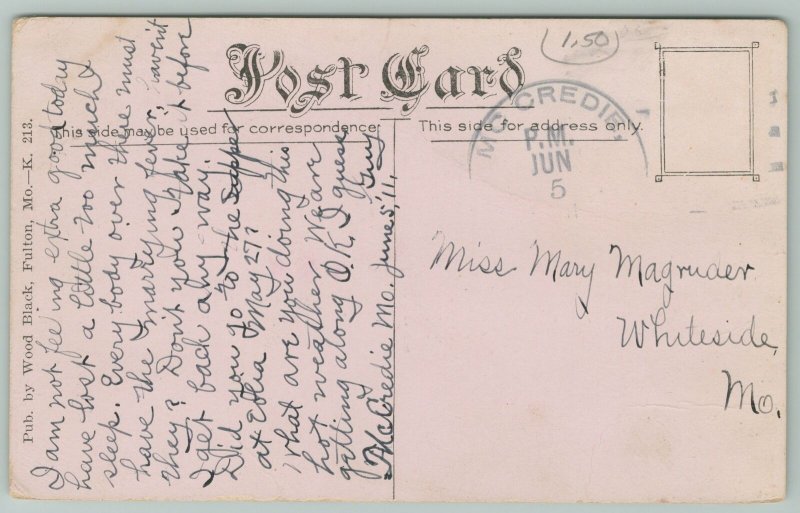 Post Card
This side may be used for correspondence.
This side for address only.
1.50
McCREDIE,
P.M.
JUN
5
Miss Mary Magruder
Whiteside,
Mo.
I am not feeling extra good today
have lost a little too much
sleep. Every body over there must
have the marrying fever, haven't
they? Don't you take it before
I get back any way.
Did you go to the supper
at Eolia May 27?
What are you doing this
hot weather. We are
getting along O.K. I guess
Guy
McCredie Mo. June 5, '11.
Pub. by Wood Black, Fulton, Mo.—K. 213.